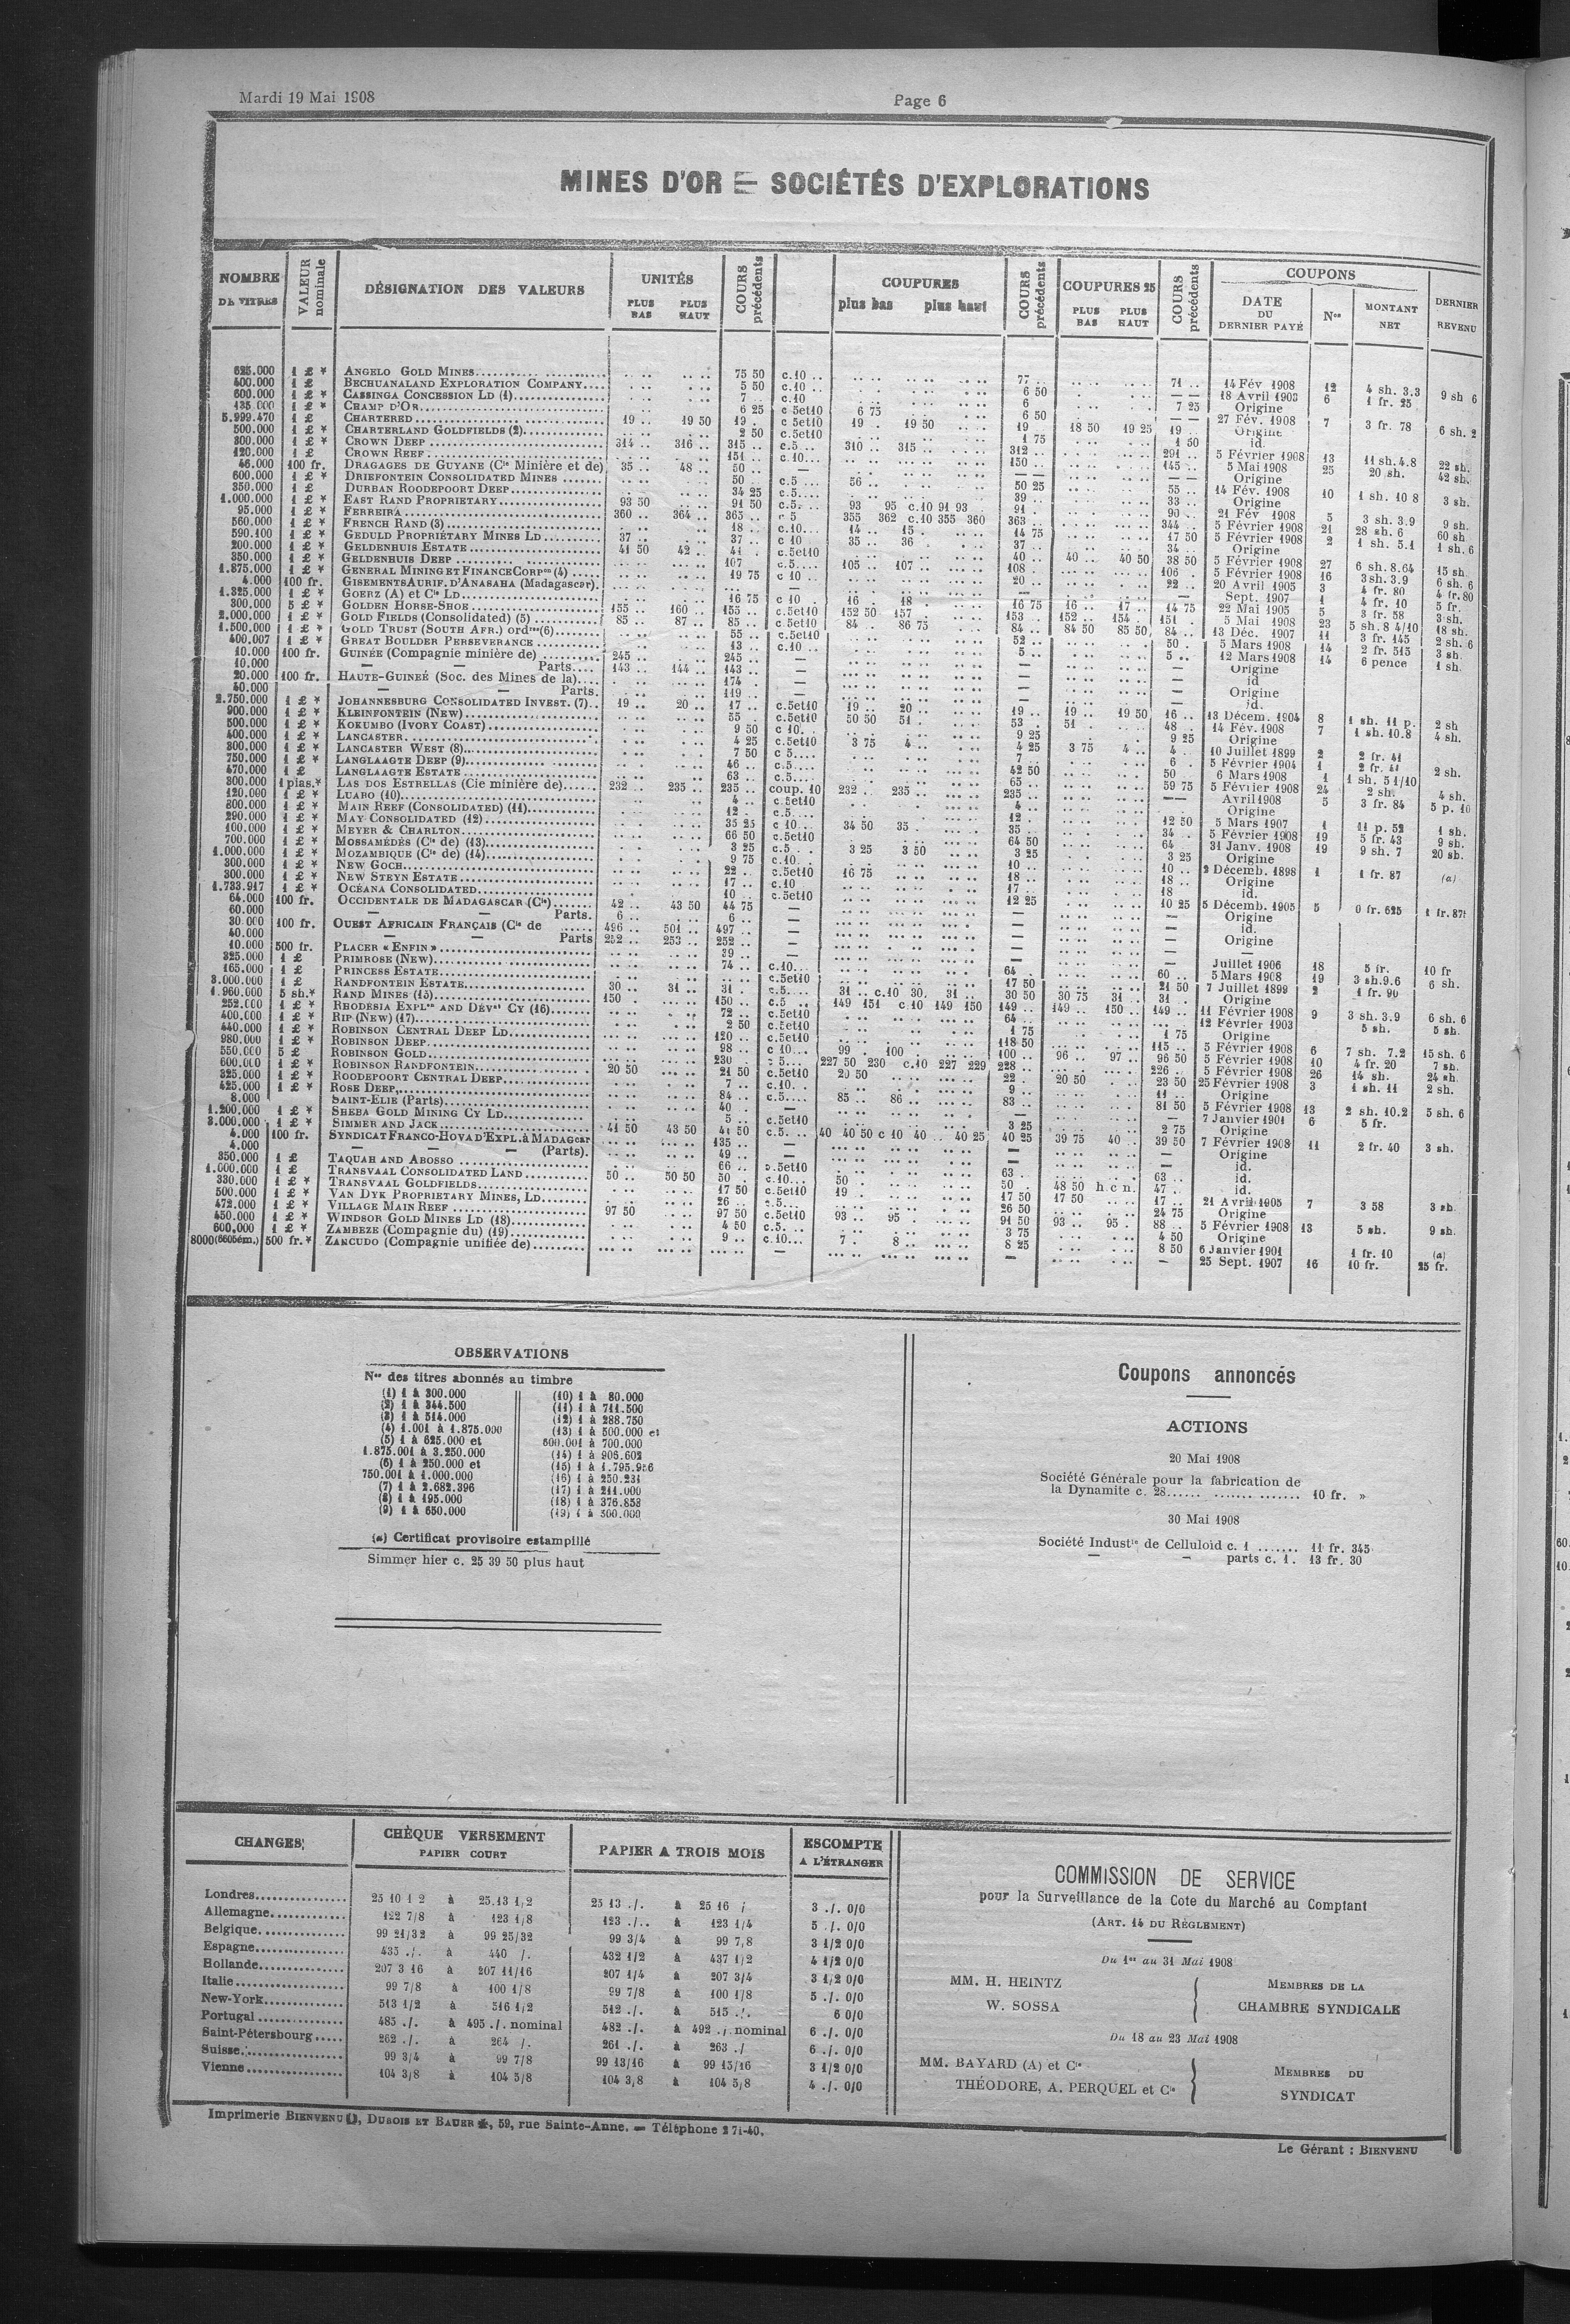 Mardi 19 Mai 1908
Page 6
MINES D'OR — SOCIÉTÉS D'EXPLORATIONS
NOMBRE DE TITRES
VALEUR nominale
DÉSIGNATION DES VALEURS
UNITÉS
PLUS BAS PLUS HAUT
COURS précédents
COUPURES
plus bas plus haut
COURS précédents
COUPURES 25
PLUS BAS PLUS HAUT
COURS précédents
COUPONS
DATE DU DERNIER PAYÉ
Nos
MONTANT NET
DERNIER REVENU
625.000 1 £ * ANGELO GOLD MINES 75 50 c.10 77 71 14 Fév 1908 12 4 sh. 3.3 9 sh 6
400.000 1 £ BECHUANALAND EXPLORATION COMPANY 5 50 c.10 6 50 — — 18 Avril 1903 6 1 fr. 25
600.000 1 £ * CASSINGA CONCESSION LD (1) 7 c.10 6 7 25 Origine
135.000 1 £ * CHAMP D'OR 6 25 c 5et10 6 75 6 50 — — 27 Fév. 1908 7 3 fr. 78 6 sh. 2
5.999.470 1 £ CHARTERED 19 19 50 19 c 5et10 19 19 50 19 18 50 19 25 19 Origine
500.000 1 £ * CHARTERLAND GOLDFIELDS (2) 2 50 c.5et10 1 75 1 50 id.
300.000 1 £ * CROWN DEEP 314 316 315 c.5 310 315 312 291 5 Février 1908 13 11 sh.4.8 22 sh.
120.000 1 £ CROWN REEF 151 c.10 150 145 5 Mai 1908 25 20 sh. 42 sh.
46.000 100 fr. DRAGAGES DE GUYANE (Cie Minière et de) 35 48 50 — — — Origine
600.000 1 £ * DRIEFONTEIN CONSOLIDATED MINES 50 c.5 56 50 25 55 14 Fév. 1908 10 1 sh. 10 8 3 sh.
350.000 1 £ DURBAN ROODEPOORT DEEP 34 25 c.5 39 33 Origine
1.000.000 1 £ * EAST RAND PROPRIETARY 93 50 91 50 c.5 93 95 c.10 91 93 91 90 21 Fév 1908 5 3 sh. 3.9 9 sh.
95.000 1 £ * FERREIRA 360 364 365 c 5 355 362 c.10 355 360 363 344 5 Février 1908 21 28 sh. 6 60 sh.
560.000 1 £ * FRENCH RAND (3) 18 c.10 14 15 14 75 17 50 5 Février 1908 2 1 sh. 5.1 1 sh. 6
590.100 1 £ * GEDULD PROPRIETARY MINES LD 37 37 c 10 35 36 37 34 Origine
200.000 1 £ * GELDENHUIS ESTATE 41 50 42 41 c.5et10 40 40 40 50 38 50 5 Février 1908 27 6 sh. 8.64 15 sh.
350.000 1 £ * GELDENHUIS DEEP 107 c.5 105 107 108 106 5 Février 1908 16 3sh. 3.9 6 sh. 6
1.875.000 1 £ * GENERAL MINING ET FINANCE CORPon (4) 19 75 c 10 20 22 20 Avril 1905 3 4 fr. 80 4 fr.80
4.000 100 fr. GISEMENTS AURIF. D'ANASAHA (Madagascar) — — — Sept. 1907 1 4 fr. 10 5 fr.
1.325.000 1 £ * GOERZ (A) et Cie LD 16 75 c 10 16 18 16 75 16 17 14 75 22 Mai 1905 5 3 fr. 58 3 sh.
300.000 5 £ * GOLDEN HORSE-SHOE 155 160 155 c.5et10 152 50 157 153 152 154 151 5 Mai 1908 23 5 sh. 8 4/10 18 sh.
2.000.000 1 £ * GOLD FIELDS (Consolidated) (5) 85 87 85 c 5et10 84 86 75 84 84 50 85 50 84 13 Déc. 1907 11 3 fr. 145 2 sh. 6
1.500.000 1 £ * GOLD TRUST (SOUTH AFR.) ordres(6) 55 c.5et10 52 50 5 Mars 1908 14 2 fr. 515 3 sh.
400.007 1 £ * GREAT BOULDER PERSEVERANCE 13 c.10 5 5 12 Mars 1908 14 6 pence 1 sh.
10.000 100 fr. GUINÉE (Compagnie minière de) 245 245 — — — Origine
10.000 — — Parts 143 144 143 — — — id
20.000 100 fr. HAUTE-GUINEÉ (Soc. des Mines de la) 174 — — — Origine
40.000 — — Parts. 119 — — — id.
2.750.000 1 £ * JOHANNESBURG CONSOLIDATED INVEST. (7) 19 20 17 c.5et10 19 20 19 19 19 50 16 13 Décem. 1904 8 1 sh. 11 p. 2 sh
900.000 1 £ * KLEINFONTEIN (New) 55 c.5et10 50 50 51 53 51 48 14 Fév. 1908 7 1 sh. 10.8 4 sh.
500.000 1 £ * KOKUMBO (IVORY COAST) 9 50 c 10 9 25 9 25 Origine
400.000 1 £ * LANCASTER 4 25 c.5et10 3 75 4 4 25 3 75 4 4 10 Juillet 1899 2 2 fr. 41
300.000 1 £ * LANCASTER WEST (8) 7 50 c 5 7 6 5 Février 1904 1 2 fr. 41
750.000 1 £ * LANGLAAGTE DEEP (9) 46 c.5 42 50 50 6 Mars 1908 1 1 sh. 5 1/10 2 sh.
470.000 1 £ LANGLAAGTE ESTATE 63 c.5 65 59 75 5 Février 1908 24 2 sh. 4 sh.
300.000 1 pias.* LAS DOS ESTRELLAS (Cie minière de) 232 235 235 coup. 10 232 235 235 — — Avril 1908 5 3 fr. 84 5 p. 10
120.000 1 £ * LUABO (10) 4 c.5et10 4 Origine
800.000 1 £ * MAIN REEF (CONSOLIDATED) (11) 12 c.5 12 12 50 5 Mars 1907 1 11 p. 52 1 sh.
290.000 1 £ * MAY CONSOLIDATED (12) 35 25 c 10 34 50 35 35 34 5 Février 1908 19 5 fr. 43 9 sh.
100.000 1 £ * MEYER & CHARLTON 66 50 c.5et10 64 50 64 31 Janv. 1908 19 9 sh. 7 20 sh.
700.000 1 £ * MOSSAMÉDÈS (Cie de) (13) 3 25 c.5 3 25 3 50 3 25 3 25 Origine
1.000.000 1 £ * MOZAMBIQUE (Cie de) (14) 9 75 c.10 10 10 2 Décemb. 1898 1 1 fr. 87 (a)
300.000 1 £ * NEW GOCH 22 c.5et10 16 75 18 18 Origine
300.000 1 £ * NEW STEYN ESTATE 17 c.10 17 18 id.
1.733.917 1 £ * OCÉANA CONSOLIDATED 10 c.5et10 12 25 10 25 5 Décemb. 1905 5 0 fr. 625 1 fr.87
64.000 100 fr. OCCIDENTALE DE MADAGASCAR (Cie) 42 43 50 44 75 — — — Origine
60.000 — — Parts. 6 6 — — — id.
30.000 100 fr. OUEST AFRICAIN FRANÇAIS (Cie de 496 501 497 — — — Origine
40.000 — — Parts 252 253 252 — — —
10.000 500 fr. PLACER « ENFIN » 39 — — — Juillet 1906 18 5 fr. 10 fr
325.000 1 £ PRIMROSE (NEW) 74 c.10 64 60 5 Mars 1908 19 3 sh.9.6 6 sh.
165.000 1 £ PRINCESS ESTATE c.5et10 17 50 21 50 7 Juillet 1899 2 1 fr. 90
3.000.000 1 £ RANDFONTEIN ESTATE 30 31 31 c.5 31 c.10 30 31 30 50 30 75 31 31 Origine
1.960.000 5 sh.* RAND MINES (15) 150 150 c.5 149 151 c 10 149 150 149 149 150 149 11 Février 1908 9 3 sh. 3.9 6 sh. 6
252.000 1 £ * RHODESIA EXPLon AND DÉVnt CY (16) 72 c.5et10 64 12 Février 1903 5 sh. 5 sh.
400.000 1 £ * RIP (NEW) (17) 2 50 c.5et10 1 75 1 75 Origine
440.000 1 £ * ROBINSON CENTRAL DEEP LD 120 c.5et10 118 50 115 5 Février 1908 6 7 sh. 7.2 15 sh. 6
980.000 1 £ * ROBINSON DEEP 98 c 10 99 100 100 96 97 96 50 5 Février 1908 10 4 fr. 20 7 sh.
550.000 5 £ ROBINSON GOLD 230 c 5 227 50 230 c.10 227 229 228 226 5 Février 1908 26 14 sh. 24 sh.
600.000 1 £ * ROBINSON RANDFONTEIN 20 50 21 50 c.5et10 20 50 22 20 50 23 50 25 Février 1908 3 1 sh. 11 2 sh.
325.000 1 £ * ROODEPOORT CENTRAL DEEP 7 c.10 9 11 Origine
425.000 1 £ * ROSE DEEP 84 c.5 85 86 83 81 50 5 Février 1908 13 2 sh. 10.2 5 sh. 6
8.000 SAINT-ELIE (Parts) 40 — — — 7 Janvier 1901 6 5 fr.
1.200.000 1 £ * SHEBA GOLD MINING CY LD 5 c.5et10 3 25 2 75 Origine
3.000.000 1 £ * SIMMER AND JACK 41 50 43 50 41 50 c.5 40 40 50 c 10 40 40 25 40 25 39 75 40 39 50 7 Février 1908 11 2 fr. 40 3 sh.
4.000 100 fr. SYNDICAT FRANCO-HOVA D'EXPL. à MADAGcar 135 — — — Origine
4.000 — — (Parts). 49 — — — id.
350.000 1 £ TAQUAH AND ABOSSO 66 c.5et10 63 63 id.
1.000.000 1 £ TRANSVAAL CONSOLIDATED LAND 50 50 50 50 c.10 50 50 48 50 h.c n. 47 id.
330.000 1 £ * TRANSVAAL GOLDFIELDS 17 50 c.5et10 19 17 50 17 50 17 21 Avril 1905 7 3 58 3 sh.
500.000 1 £ * VAN DYK PROPRIETARY MINES, LD 26 c.5 26 50 24 75 Origine
472.000 1 £ * VILLAGE MAIN REEF 97 50 97 50 c.5et10 93 95 91 50 93 95 88 5 Février 1908 13 5 sh. 9 sh.
450.000 1 £ * WINDSOR GOLD MINES LD (18) 4 50 c.5 3 75 4 50 Origine
600.000 1 £ * ZAMBEZE (Compagnie du) (19) 9 c.10 7 8 8 25 8 50 6 Janvier 1901 1 fr. 10 (a)
8000 500 fr.* ZANCUDO (Compagnie unifiée de) — — — 25 Sept. 1907 16 10 fr. 25 fr.
OBSERVATIONS
Nos des titres abonnés au timbre
(1) 1 à 300.000
(2) 1 à 344.500
(3) 1 à 514.000
(4) 1.001 à 1.875.000
(5) 1 à 625.000 et
1.875.001 à 3.250.000
(6) 1 à 250.000 et
750.001 à 1.000.000
(7) 1 à 2.682.396
(8) 1 à 195.000
(9) 1 à 650.000
(10) 1 à 80.000
(11) 1 à 711.500
(12) 1 à 288.750
(13) 1 à 500.000 et
600.001 à 700.000
(14) 1 à 906.602
(15) 1 à 1.795.956
(16) 1 à 250.231
(17) 1 à 211.000
(18) 1 à 376.853
(19) 1 à 300.000
(a) Certificat provisoire estampillé
Simmer hier c. 25 39 50 plus haut
Coupons annoncés
ACTIONS
20 Mai 1908
Société Générale pour la fabrication de
la Dynamite c. 28 10 fr. »
30 Mai 1908
Société Industle de Celluloïd c. 1 11 fr. 345
— — parts c. 1. 13 fr. 30
CHANGES
CHÈQUE VERSEMENT
PAPIER COURT
PAPIER A TROIS MOIS
ESCOMPTE
A L'ÉTRANGER
Londres 25 10 1 2 à 25.13 1/2 25 13 ./. à 25 16 / 3 ./. 0/0
Allemagne 122 7/8 à 123 1/8 123 ./. à 123 1/4 5 ./. 0/0
Belgique 99 21/32 à 99 25/32 99 3/4 à 99 7/8 3 1/2 0/0
Espagne 435 ./. à 440 /. 432 1/2 à 437 1/2 4 1/2 0/0
Hollande 207 3 16 à 207 11/16 207 1/4 à 207 3/4 3 1/2 0/0
Italie 99 7/8 à 100 1/8 99 7/8 à 100 1/8 5 ./. 0/0
New-York 513 1/2 à 516 1/2 512 ./. à 515 ./. 6 0/0
Portugal 485 ./. à 495 ./. nominal 482 ./. à 492 ./. nominal 6 ./. 0/0
Saint-Pétersbourg 262 ./. à 264 /. 261 ./. à 263 ./ 6 ./. 0/0
Suisse 99 3/4 à 99 7/8 99 13/16 à 99 15/16 3 1/2 0/0
Vienne 104 3/8 à 104 5/8 104 3/8 à 104 5/8 4 ./. 0/0
COMMISSION DE SERVICE
pour la Surveillance de la Cote du Marché au Comptant
(ART. 14 DU RÈGLEMENT)
Du 1er au 31 Mai 1908
MM. H. HEINTZ
W. SOSSA
MEMBRES DE LA
CHAMBRE SYNDICALE
Du 18 au 23 Mai 1908
MM. BAYARD (A) et Cie
THÉODORE, A. PERQUEL et Cie
MEMBRES DU
SYNDICAT
Imprimerie BIENVENU, DUBOIS ET BAUER, 59, rue Sainte-Anne. — Téléphone 271-40.
Le Gérant : BIENVENU